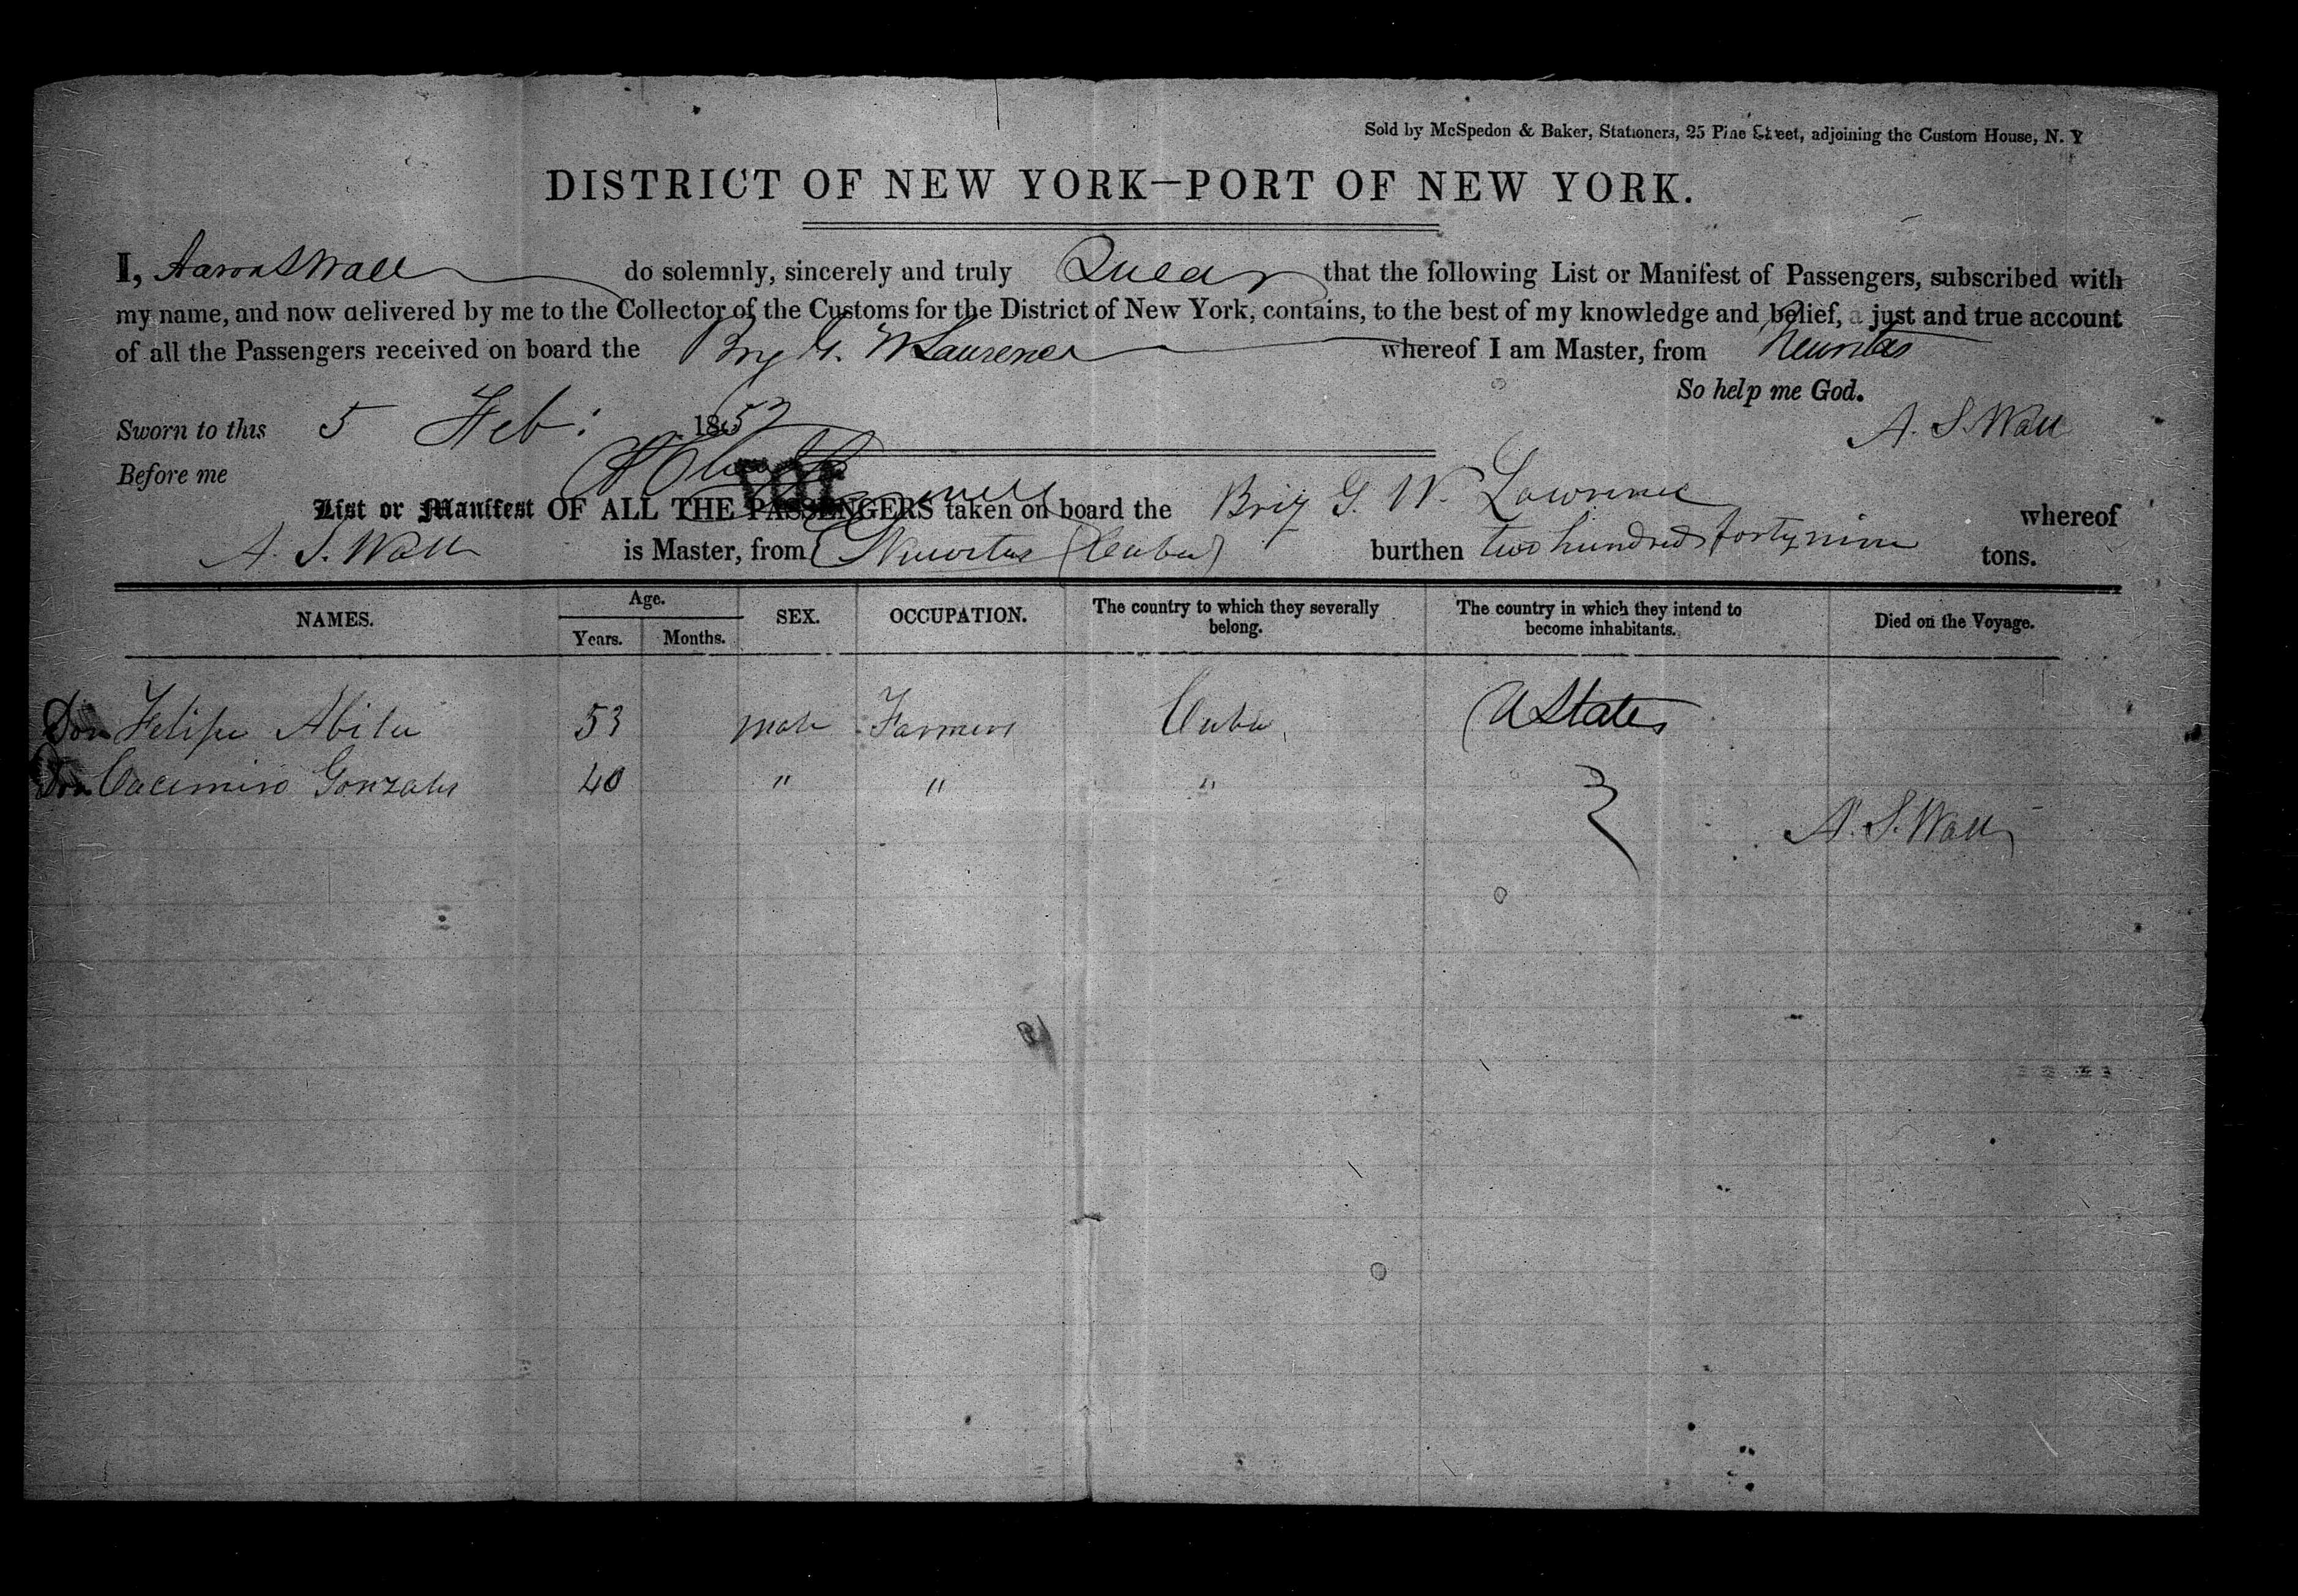 Sold by McSpedon & Baker, Stationers, 25 Pine Street, adjoining the Custom House, N. Y
DISTRICT OF NEW YORK—PORT OF NEW YORK.
I, Aaron S Wall do solemnly, sincerely and truly Swear that the following List or Manifest of Passengers, subscribed with
my name, and now delivered by me to the Collector of the Customs for the District of New York, contains, to the best of my knowledge and belief, a just and true account
of all the Passengers received on board the Brig G. W Lawrence whereof I am Master, from Neuvitas
So help me God.
Sworn to this 5 Feb: 1852 A. S. Wall
Before me
List or Manifest OF ALL THE PASSENGERS taken on board the Brig G. W. Lawrence whereof
A. S. Wall is Master, from Nuevitas (Cuba) burthen two hundred forty nine tons.
NAMES. Age. Years. Months. SEX. OCCUPATION. The country to which they severally belong. The country in which they intend to become inhabitants. Died on the Voyage.
Don Felipe 53 male Farmers Cuba U States
Don Cacimiro Gonzales 40 " " "
A. S. Wall